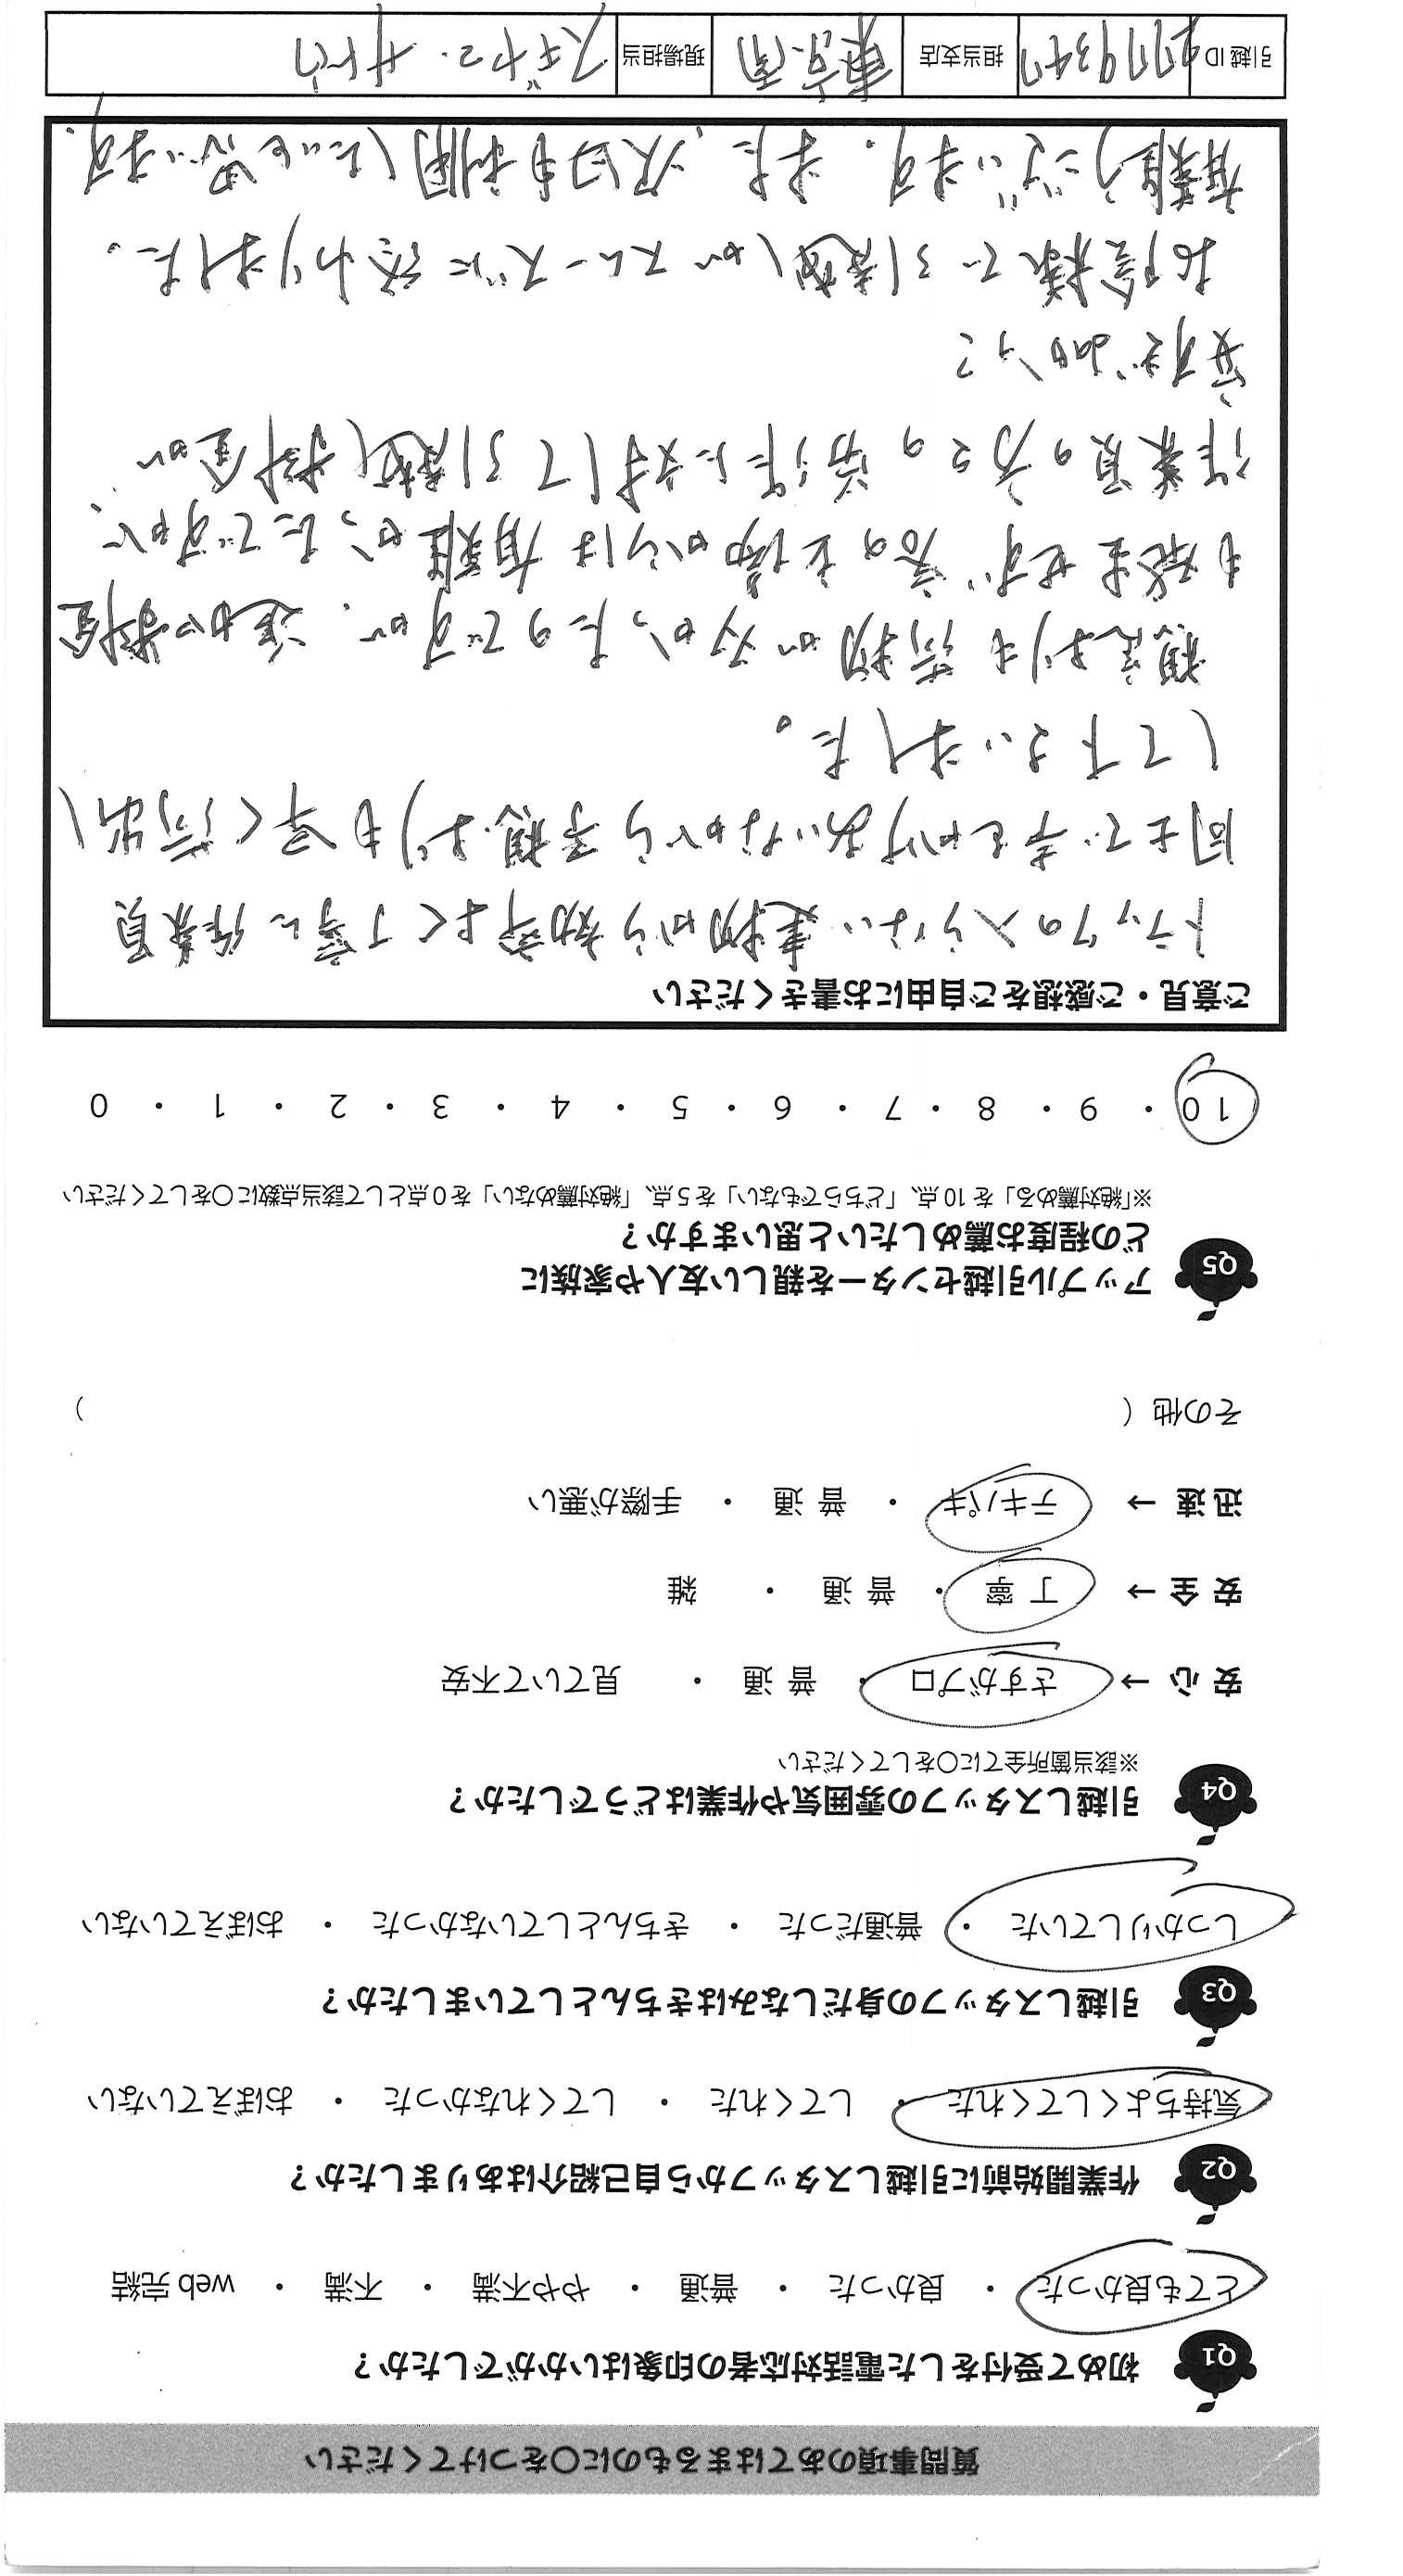 質問事項のあてはまるものに○をつけてください
Q1 初めて受付をした電話対応者の印象はいかがでしたか？
とても良かった ・ 良かった ・ 普通 ・ やや不満 ・ 不満 ・ web 完結
Q2 作業開始前に引越しスタッフから自己紹介はありましたか？
気持ちよくしてくれた ・ してくれた ・ してくれなかった ・ おぼえていない
Q3 引越しスタッフの身だしなみはきちんとしていましたか？
しっかりしていた ・ 普通だった ・ きちんとしていなかった ・ おぼえていない
Q4 引越しスタッフの雰囲気や作業はどうでしたか？
※該当箇所全てに○をしてください
安 心 → さすがプロ ・ 普 通 ・ 見ていて不安
安 全 → 丁 寧 ・ 普 通 ・ 雑
迅 速 → テキパキ ・ 普 通 ・ 手際が悪い
その他（ ）
Q5 アップル引越センターを親しい友人や家族に
どの程度お薦めしたいと思いますか？
※「絶対薦める」を 10 点、「どちらでもない」を 5 点、「絶対薦めない」を 0 点として該当点数に○をしてください
10 ・ 9 ・ 8 ・ 7 ・ 6 ・ 5 ・ 4 ・ 3 ・ 2 ・ 1 ・ 0
ご意見・ご感想をご自由にお書きください
トラックの入らない建物から効率よく丁寧に作業員
同士で声をかけあいながら予想よりも早く荷出し
して下さいました。
想定よりも荷物が多かったのですが、追加料金
も発生せず客の立場からは有難かったですが、
作業員の方々の労働に対して引越し料金が
安すぎるかも？
お陰様で引越しがスムーズに終わりました。
有難うございます。また、次回も利用したいと思います。
引越 ID 2779347 担当支店 東京南 現場担当 スギヤマ・サトウ